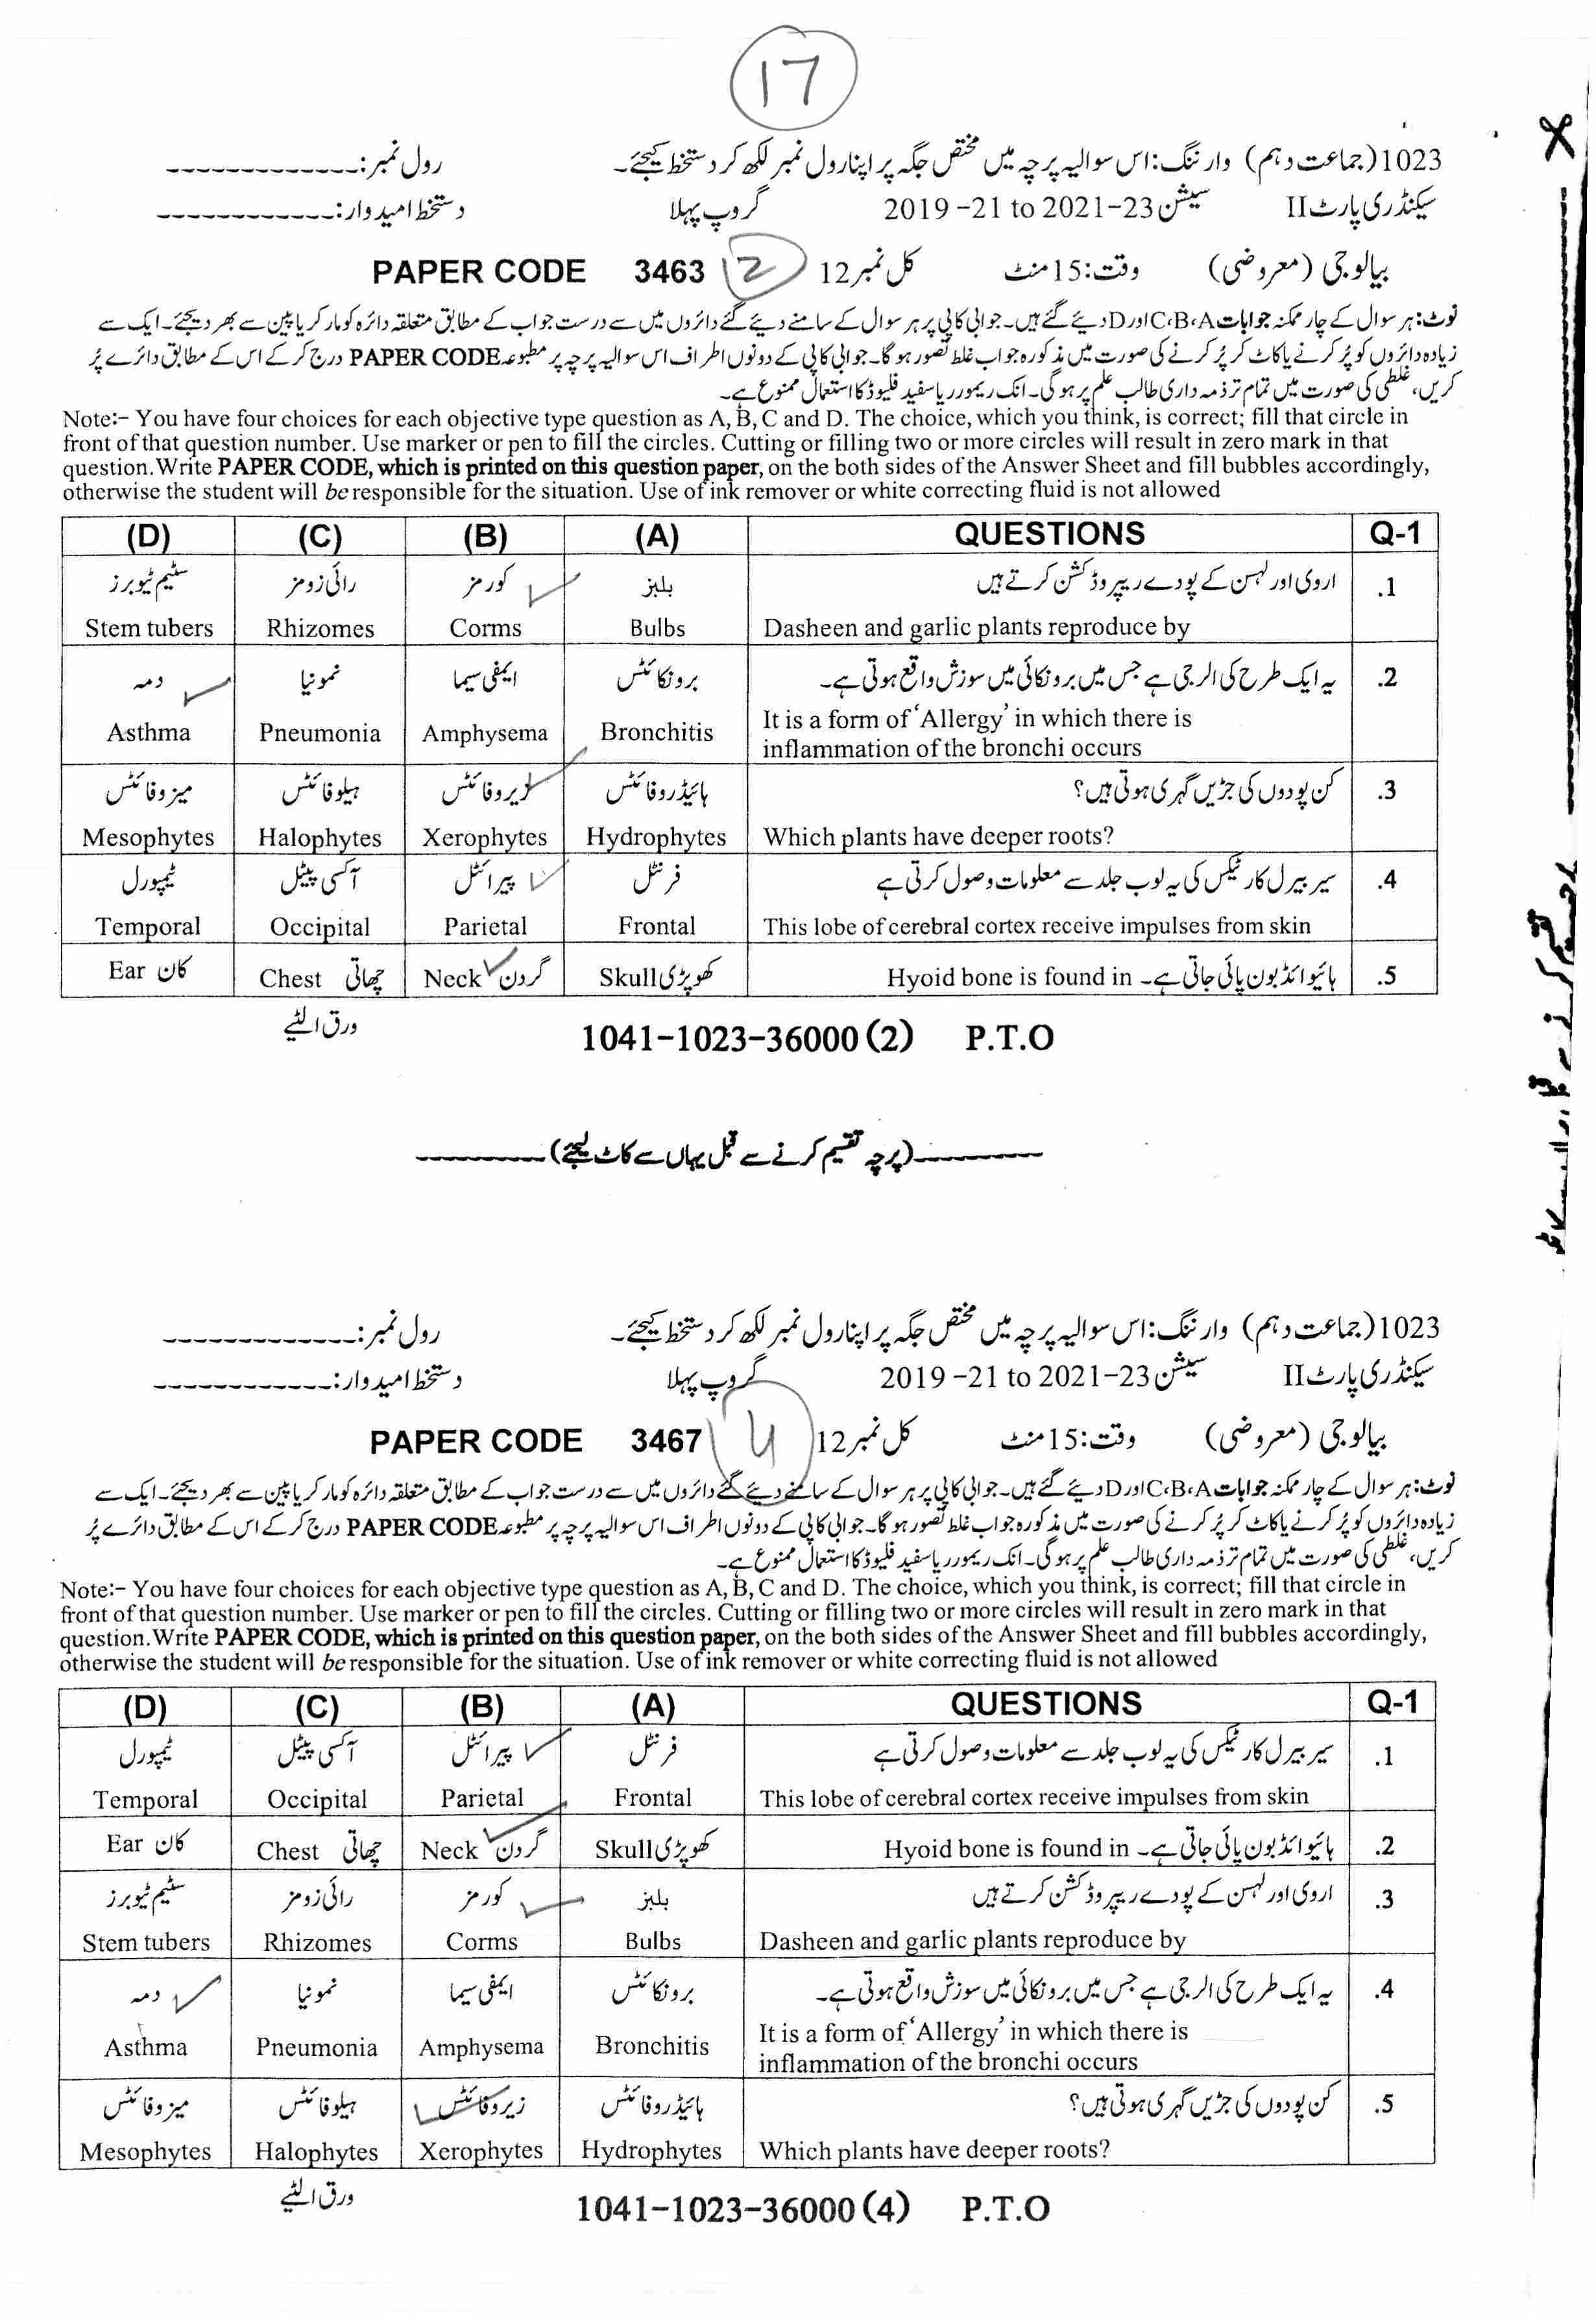 17
1023(جماعت دہم) وارننگ:اس سوالیہ پرچہ میں مختص جگہ پر اپنا رول نمبر لکھ کر دستخط کیجئے۔ رول نمبر:-------------
سیکنڈری پارٹ II سیشن 2019-21 to 2021-23 گروپ پہلا دستخط امیدوار:------------
بیالوجی (معروضی) وقت:15 منٹ کل نمبر12 PAPER CODE 3463 2
نوٹ:ہر سوال کے چار ممکنہ جوابات C،B،A اور D دیئے گئے ہیں۔جوابی کاپی پر ہر سوال کے سامنے دیئے گئے دائروں میں سے درست جواب کے مطابق متعلقہ دائرہ کو مارکر یا پین سے بھر دیجئے۔ایک سے
زیادہ دائروں کو پُر کرنے یا کاٹ کر پُر کرنے کی صورت میں مذکورہ جواب غلط تصور ہو گا۔جوابی کاپی کے دونوں اطراف اس سوالیہ پرچہ پر مطبوعہ PAPER CODE درج کر کے اس کے مطابق دائرے پُر
کریں،غلطی کی صورت میں تمام تر ذمہ داری طالب علم پر ہو گی۔انک ریموور یا سفید فلیوڈ کا استعمال ممنوع ہے۔
Note:- You have four choices for each objective type question as A, B, C and D. The choice, which you think, is correct; fill that circle in
front of that question number. Use marker or pen to fill the circles. Cutting or filling two or more circles will result in zero mark in that
question.Write PAPER CODE, which is printed on this question paper, on the both sides of the Answer Sheet and fill bubbles accordingly,
otherwise the student will be responsible for the situation. Use of ink remover or white correcting fluid is not allowed
(D) (C) (B) (A) QUESTIONS Q-1
سٹیم ٹیوبرز رائی زومز کورمز بلبز اروی اور لہسن کے پودے ریپروڈکشن کرتے ہیں .1
Stem tubers Rhizomes Corms Bulbs Dasheen and garlic plants reproduce by
دمہ نمونیا ایمفی سیما برونکائٹس یہ ایک طرح کی الرجی ہے جس میں برونکائی میں سوزش واقع ہوتی ہے۔ .2
Asthma Pneumonia Amphysema Bronchitis It is a form of 'Allergy' in which there is
inflammation of the bronchi occurs
میزوفائٹس ہیلوفائٹس زیروفائٹس ہائیڈروفائٹس کن پودوں کی جڑیں گہری ہوتی ہیں؟ .3
Mesophytes Halophytes Xerophytes Hydrophytes Which plants have deeper roots?
ٹیمپورل آکسی پیٹل پیرائٹل فرنٹل سیریبرل کارٹیکس کی یہ لوب جلد سے معلومات وصول کرتی ہے .4
Temporal Occipital Parietal Frontal This lobe of cerebral cortex receive impulses from skin
Ear کان Chest چھاتی Neck گردن Skull کھوپڑی Hyoid bone is found in ہائیوائڈ بون پائی جاتی ہے۔ .5
ورق الٹیے
1041-1023-36000 (2) P.T.O
----------(پرچہ تقسیم کرنے سے قبل یہاں سے کاٹ لیجئے)----------
1023(جماعت دہم) وارننگ:اس سوالیہ پرچہ میں مختص جگہ پر اپنا رول نمبر لکھ کر دستخط کیجئے۔ رول نمبر:-------------
سیکنڈری پارٹ II سیشن 2019-21 to 2021-23 گروپ پہلا دستخط امیدوار:------------
بیالوجی (معروضی) وقت:15 منٹ کل نمبر12 PAPER CODE 3467 4
نوٹ:ہر سوال کے چار ممکنہ جوابات C،B،A اور D دیئے گئے ہیں۔جوابی کاپی پر ہر سوال کے سامنے دیئے گئے دائروں میں سے درست جواب کے مطابق متعلقہ دائرہ کو مارکر یا پین سے بھر دیجئے۔ایک سے
زیادہ دائروں کو پُر کرنے یا کاٹ کر پُر کرنے کی صورت میں مذکورہ جواب غلط تصور ہو گا۔جوابی کاپی کے دونوں اطراف اس سوالیہ پرچہ پر مطبوعہ PAPER CODE درج کر کے اس کے مطابق دائرے پُر
کریں،غلطی کی صورت میں تمام تر ذمہ داری طالب علم پر ہو گی۔انک ریموور یا سفید فلیوڈ کا استعمال ممنوع ہے۔
Note:- You have four choices for each objective type question as A, B, C and D. The choice, which you think, is correct; fill that circle in
front of that question number. Use marker or pen to fill the circles. Cutting or filling two or more circles will result in zero mark in that
question.Write PAPER CODE, which is printed on this question paper, on the both sides of the Answer Sheet and fill bubbles accordingly,
otherwise the student will be responsible for the situation. Use of ink remover or white correcting fluid is not allowed
(D) (C) (B) (A) QUESTIONS Q-1
ٹیمپورل آکسی پیٹل پیرائٹل فرنٹل سیریبرل کارٹیکس کی یہ لوب جلد سے معلومات وصول کرتی ہے .1
Temporal Occipital Parietal Frontal This lobe of cerebral cortex receive impulses from skin
Ear کان Chest چھاتی Neck گردن Skull کھوپڑی Hyoid bone is found in ہائیوائڈ بون پائی جاتی ہے۔ .2
سٹیم ٹیوبرز رائی زومز کورمز بلبز اروی اور لہسن کے پودے ریپروڈکشن کرتے ہیں .3
Stem tubers Rhizomes Corms Bulbs Dasheen and garlic plants reproduce by
دمہ نمونیا ایمفی سیما برونکائٹس یہ ایک طرح کی الرجی ہے جس میں برونکائی میں سوزش واقع ہوتی ہے۔ .4
Asthma Pneumonia Amphysema Bronchitis It is a form of 'Allergy' in which there is
inflammation of the bronchi occurs
میزوفائٹس ہیلوفائٹس زیروفائٹس ہائیڈروفائٹس کن پودوں کی جڑیں گہری ہوتی ہیں؟ .5
Mesophytes Halophytes Xerophytes Hydrophytes Which plants have deeper roots?
ورق الٹیے
1041-1023-36000 (4) P.T.O